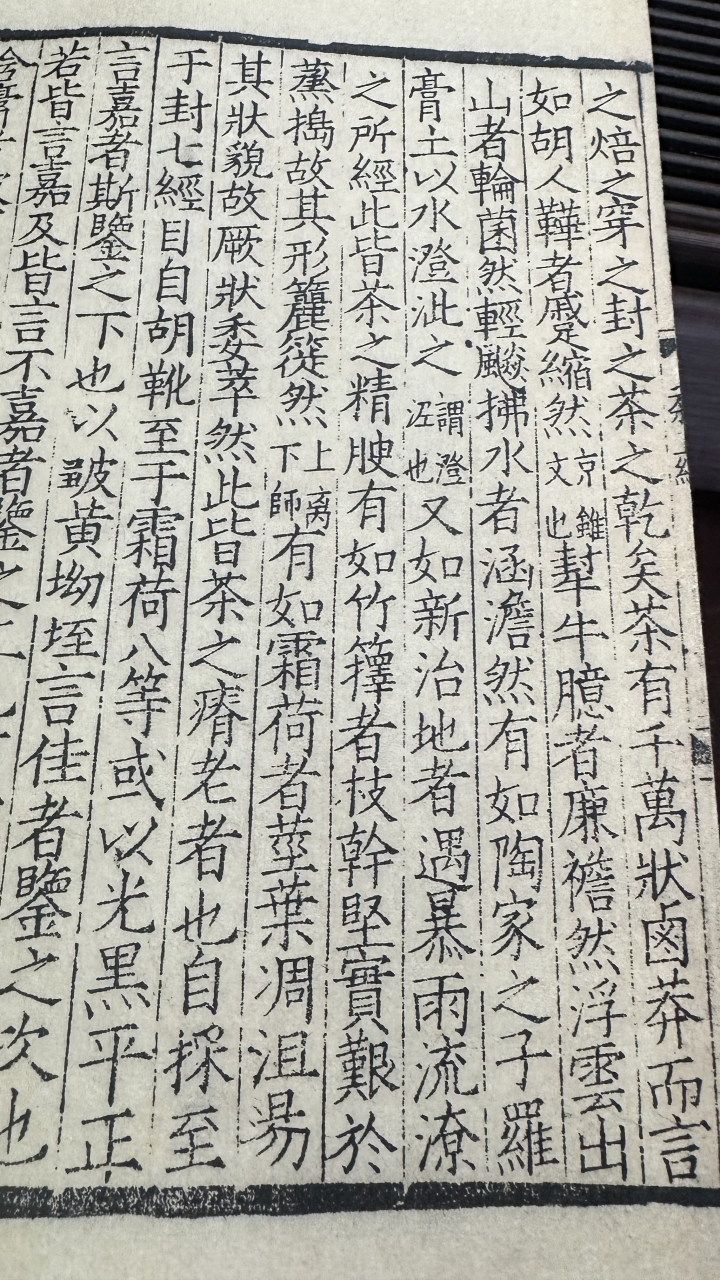 之焙之穿之封之茶之乾矣茶有千萬狀鹵莽而言
如胡人鞾者蹙縮然京錐文也犎牛臆者廉襜然浮雲出
山者輪菌然輕飈拂水者涵澹然有如陶家之子羅
膏土以水澄泚之謂澄泥也又如新治地者遇暴雨流潦
之所經此皆茶之精腴有如竹籜者枝幹堅實艱於
蒸搗故其形籭簁然上离下師有如霜荷者莖葉凋沮昜
其狀貌故厥狀委萃然此皆茶之瘠老者也自採至
于封七經目自胡靴至于霜荷八等或以光黒平正
言嘉者斯鑒之下也以皺黃坳垤言佳者鑒之次也
若皆言嘉及皆言不嘉者鑒之